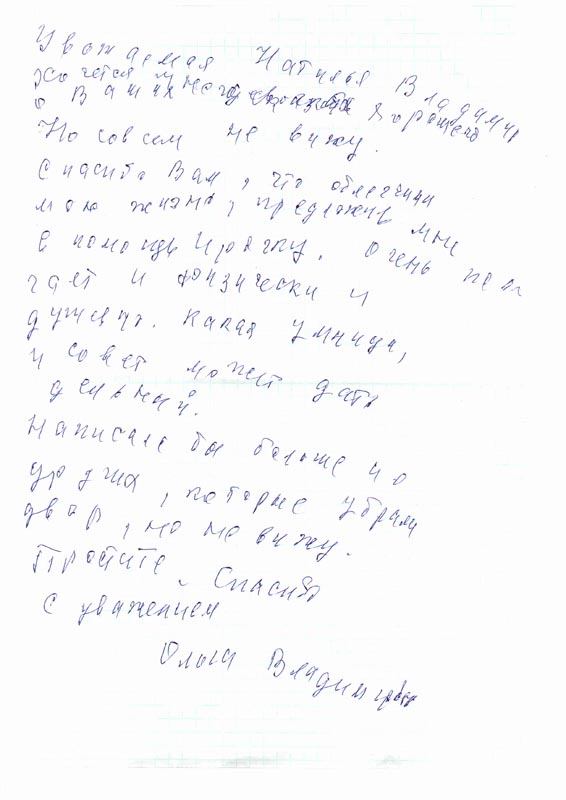 Уважаемая Наталья Владимир
Хочется много сказать хорошего
о Ваших
Но совсем не вижу.
Спасибо Вам, что облегчили
мою жизнь, предложив мне
в помощь Ирочку. Очень пом
гает и физически и
душевно. Какая умница,
и совет может дать
дельный.
Написала бы больше и о
, которые убрали
двор, но не вижу.
Простите. Спасибо
С уважением
Ольга Владимировна